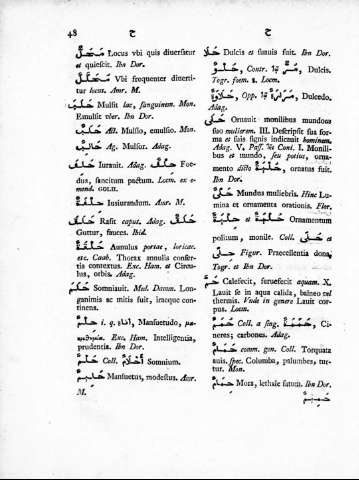 48 ح ح
مَحَلٌّ Locus vbi quis diversatur
et quiescit. Ibn Dor.
Vbi frequenter diverti-
tur locus. Amr. M.
حَلَبَ Mulsit lac, sanguinem. Mon.
Emulsit vier. Ibn Dor.
حَلْبٌ All. Mulsio, emulsio. Mon.
حَالِبٌ Ag. Mulsor. Adag.
حَلَفَ Iuravit. Adag. حِلْفٌ Foe-
dus, sancitum pactum. Locm. ex e-
mend. GOLII.
Iusiurandum. Amr. M.
حَلَقَ Rasit caput. Adag. حَلْقٌ
Guttur, fauces. Ibid.
حَلْقَةٌ Annulus portae, loricae.
etc. Caab. Thorax annulis conser-
tis contextus. Exc. Ham. et Circu-
lus, orbis. Adag.
حَلَمَ Somniavit. Mul. Damn. Lon-
ganimis ac mitis fuit, iraeque con-
tinens.
حِلْمٌ i. q. أناة, Mansuetudo,
Exc. Ham. Intelligentia,
prudentia. Ibn Dor.
حُلْمٌ Coll. أَحْلَامٌ Somnium.
حَلِيمٌ Mansuetus, modestus. Amr.
M.
حَلَا Dulcis et suauis fuit. Ibn Dor.
حُلْوٌ, Contr. مُرٌّ, Dulcis.
Togr. foem. s. Locm.
حَلَاوَةٌ, Opp. مَرَارَةٌ, Dulcedo.
Adag.
حَلَّى Ornauit monilibus mundoue
suo mulierem. III. Descripsit sua for-
ma et suis signis indicauit hominem.
Adag. V. Pass. Conf. I. Monili-
bus et mundo, seu potius, orna-
mento dicto حِلْيَةٌ, ornatus fuit.
Ibn Dor.
حَلْيٌ Mundus muliebris. Hinc Lu-
mina et ornamenta orationis. Flor.
حِلْيَةٌ et حَلْيَةٌ Ornamentum
politum, monile. Coll. حُلًى et
حِلًى Figur. Praecellentia dona,
Togr. et Ibn Dor.
حَمَّ Calefecit, feruefecit aquam. X.
Lauit se in aqua calida, balneo vel
thermis. Vnde in genere Lauit cor-
pus. Locm.
حُمَمٌ Coll. a sing. حُمَمَةٌ, Ci-
neres; carbones. Adag.
حَمَامٌ comm. gen. Coll. Torquata
auis. spec. Columba, palumbes, tur-
tur. Mon.
حِمَامٌ Mors, lethale fatum. Ibn Dor.
حَمِيمٌ